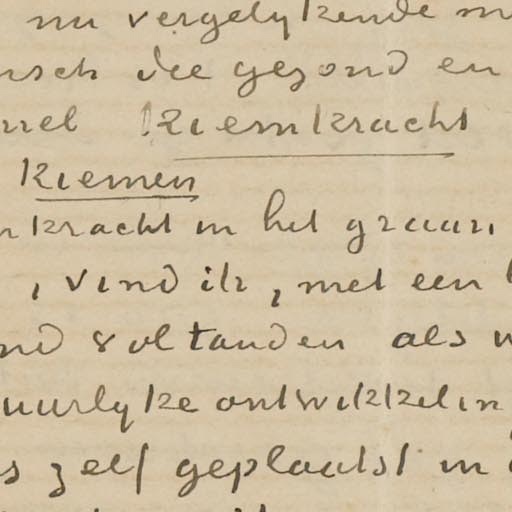 nu vergelykende m
nsch die gezond en
rrel kiemkracht
kiemen
nkracht in het graan
, vind ik, met een
nd voltanden als
uurlyke ontwikkelin
s zelf geplaatst in